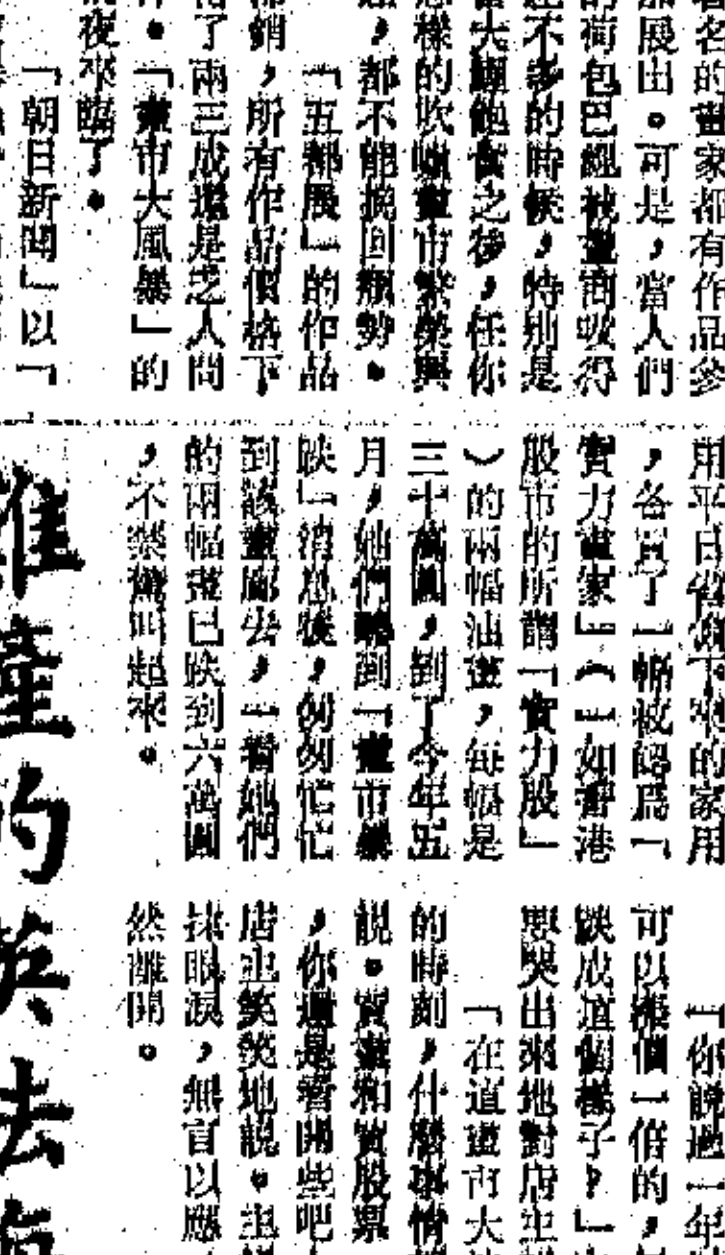 著名的畫家都有作品參
加展出。可是，當人們
的荷包已經被畫商吸得
差不多的時候，特別是
當大團飽賞之後，任你
怎樣的吹噓畫市繁榮與
，都不能挽回頹勢。
「五都展」的作品
銷，所有作品價格下
了兩三成還是乏人問
。「畫市大風暴」的
夜來臨了。
「朝日新聞」以「
用平日省儉下來的家用
，各買了一幅被認爲「
實力畫家」（一如香港
股市的所謂「實力股」
）的兩幅油畫，每幅是
三十萬圓，到了今年五
月，她們聽到「畫市暴
跌」消息後，匆匆忙忙
到該畫廊去，一看她們
的兩幅畫已跌到六萬圓
，不禁驚叫起來。
「你說過一年
可以漲個一倍的，
跌成這個樣子？」
哭出來地對店主
「在這畫市大
的時刻，什麼事情
說。買畫和買股票
，你還是看開些吧
店主笑笑地說。主
抹眼淚，無言以應
然離開。
難產的英法